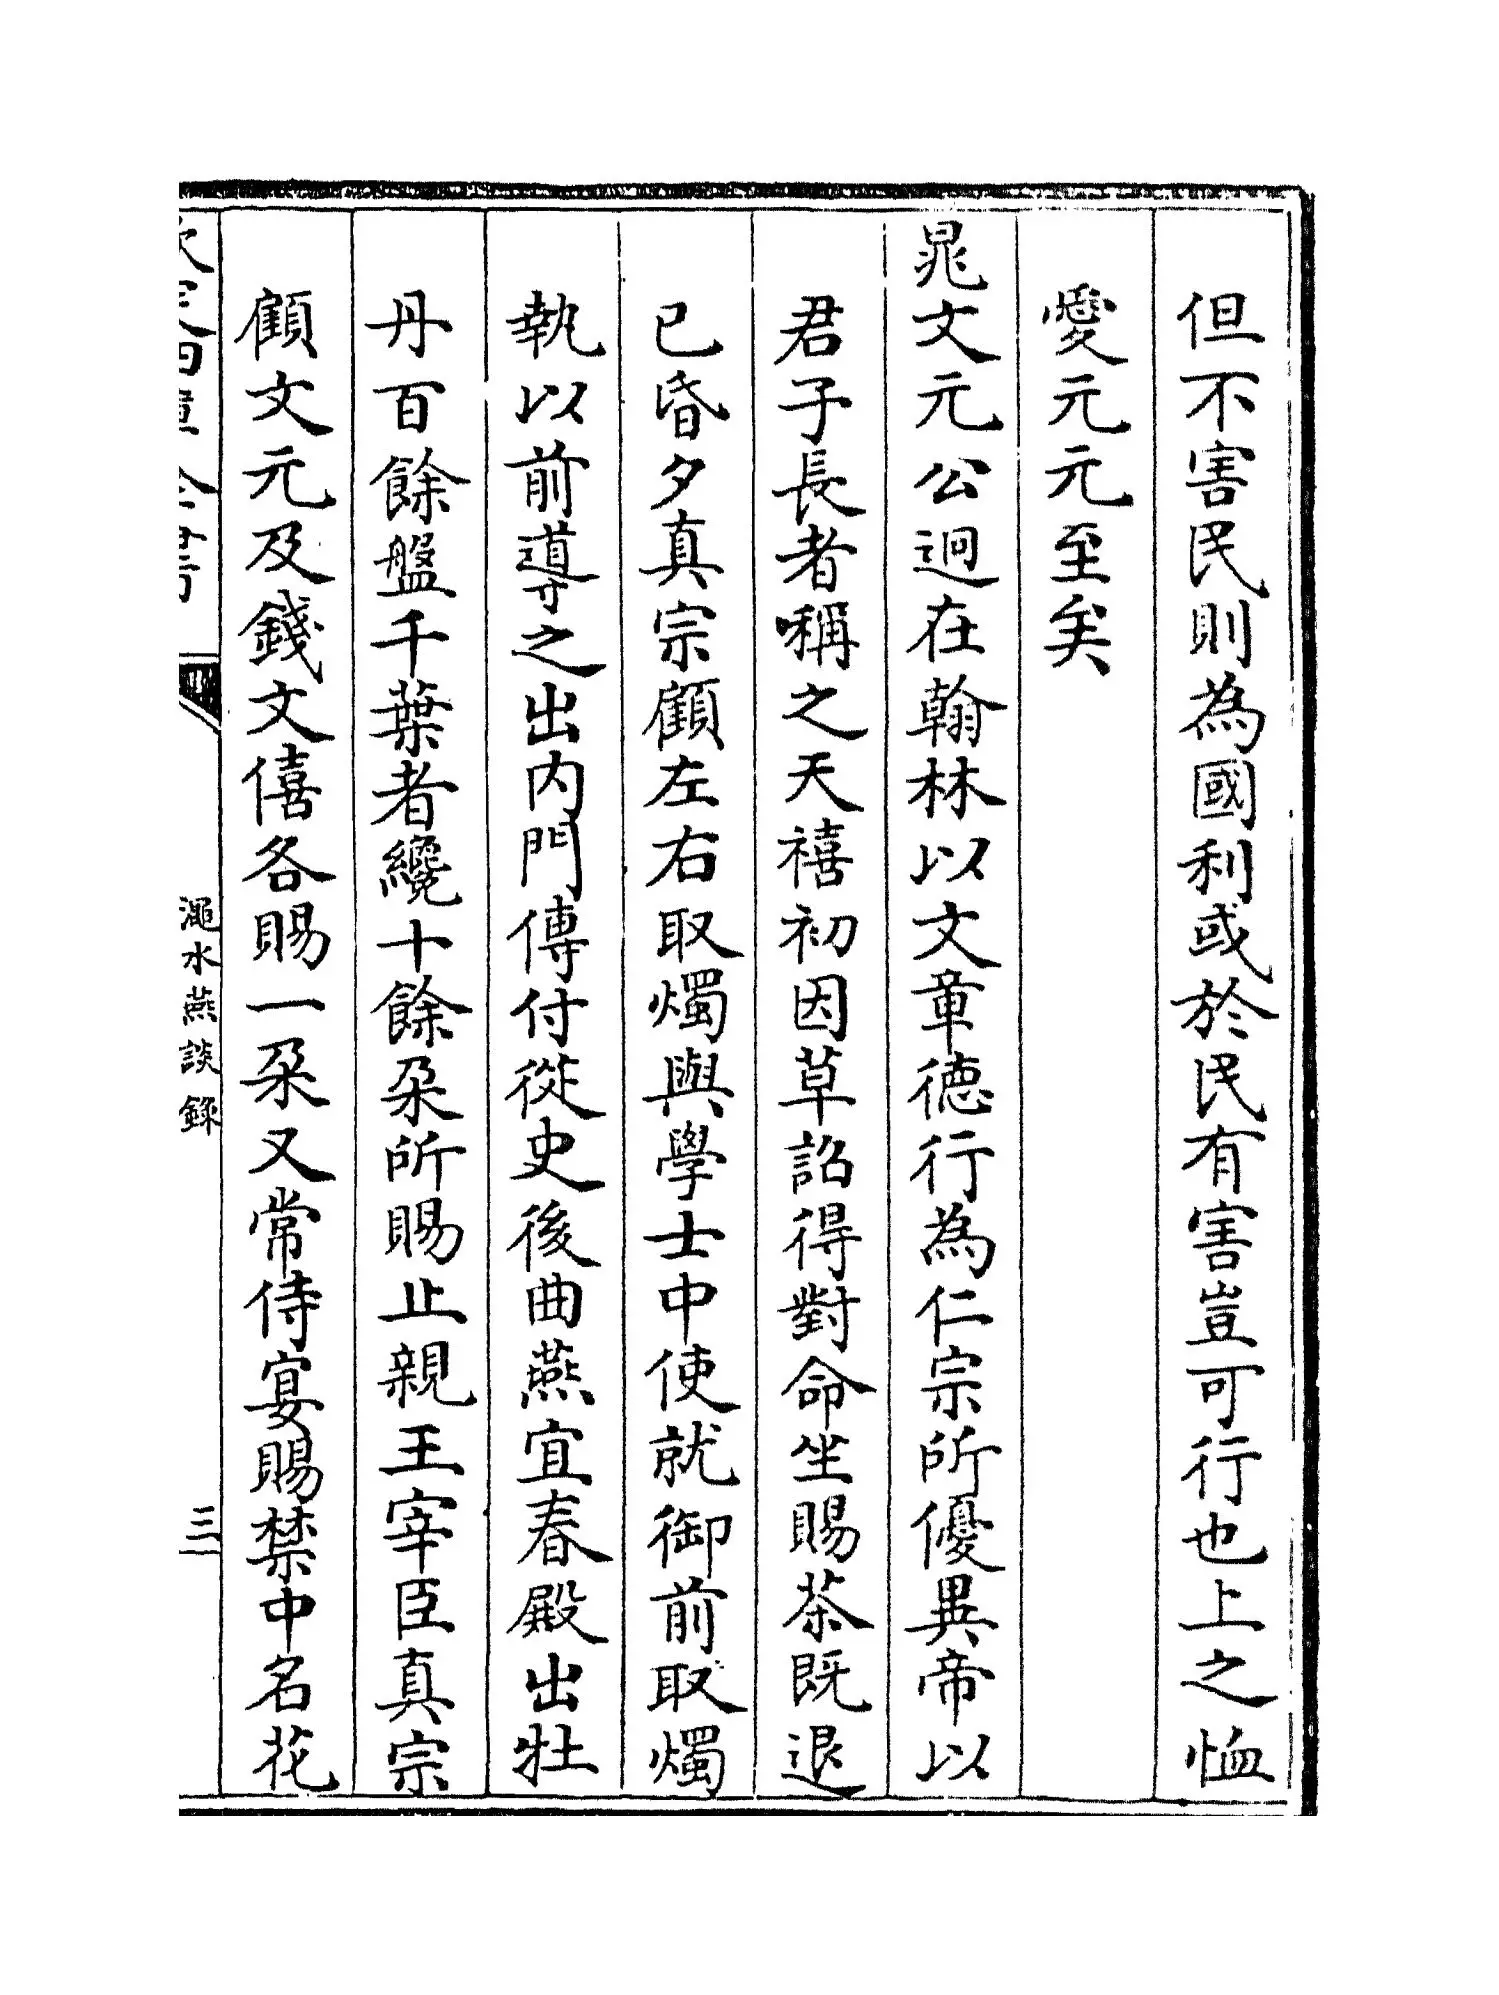 但不害民則為國利或於民有害豈可行也上之恤
愛元元至矣
晁文元公迥在翰林以文章德行為仁宗所優異帝以
君子長者稱之天禧初因草詔得對命坐賜茶既退
已昏夕真宗顧左右取燭與學士中使就御前取燭
執以前導之出内門傳付從史後曲燕宜春殿出牡
丹百餘盤千葉者纔十餘朶所賜止親王宰臣真宗
顧文元及錢文僖各賜一朶又常侍宴賜禁中名花
欽定四庫全書
澠水燕談錄
三